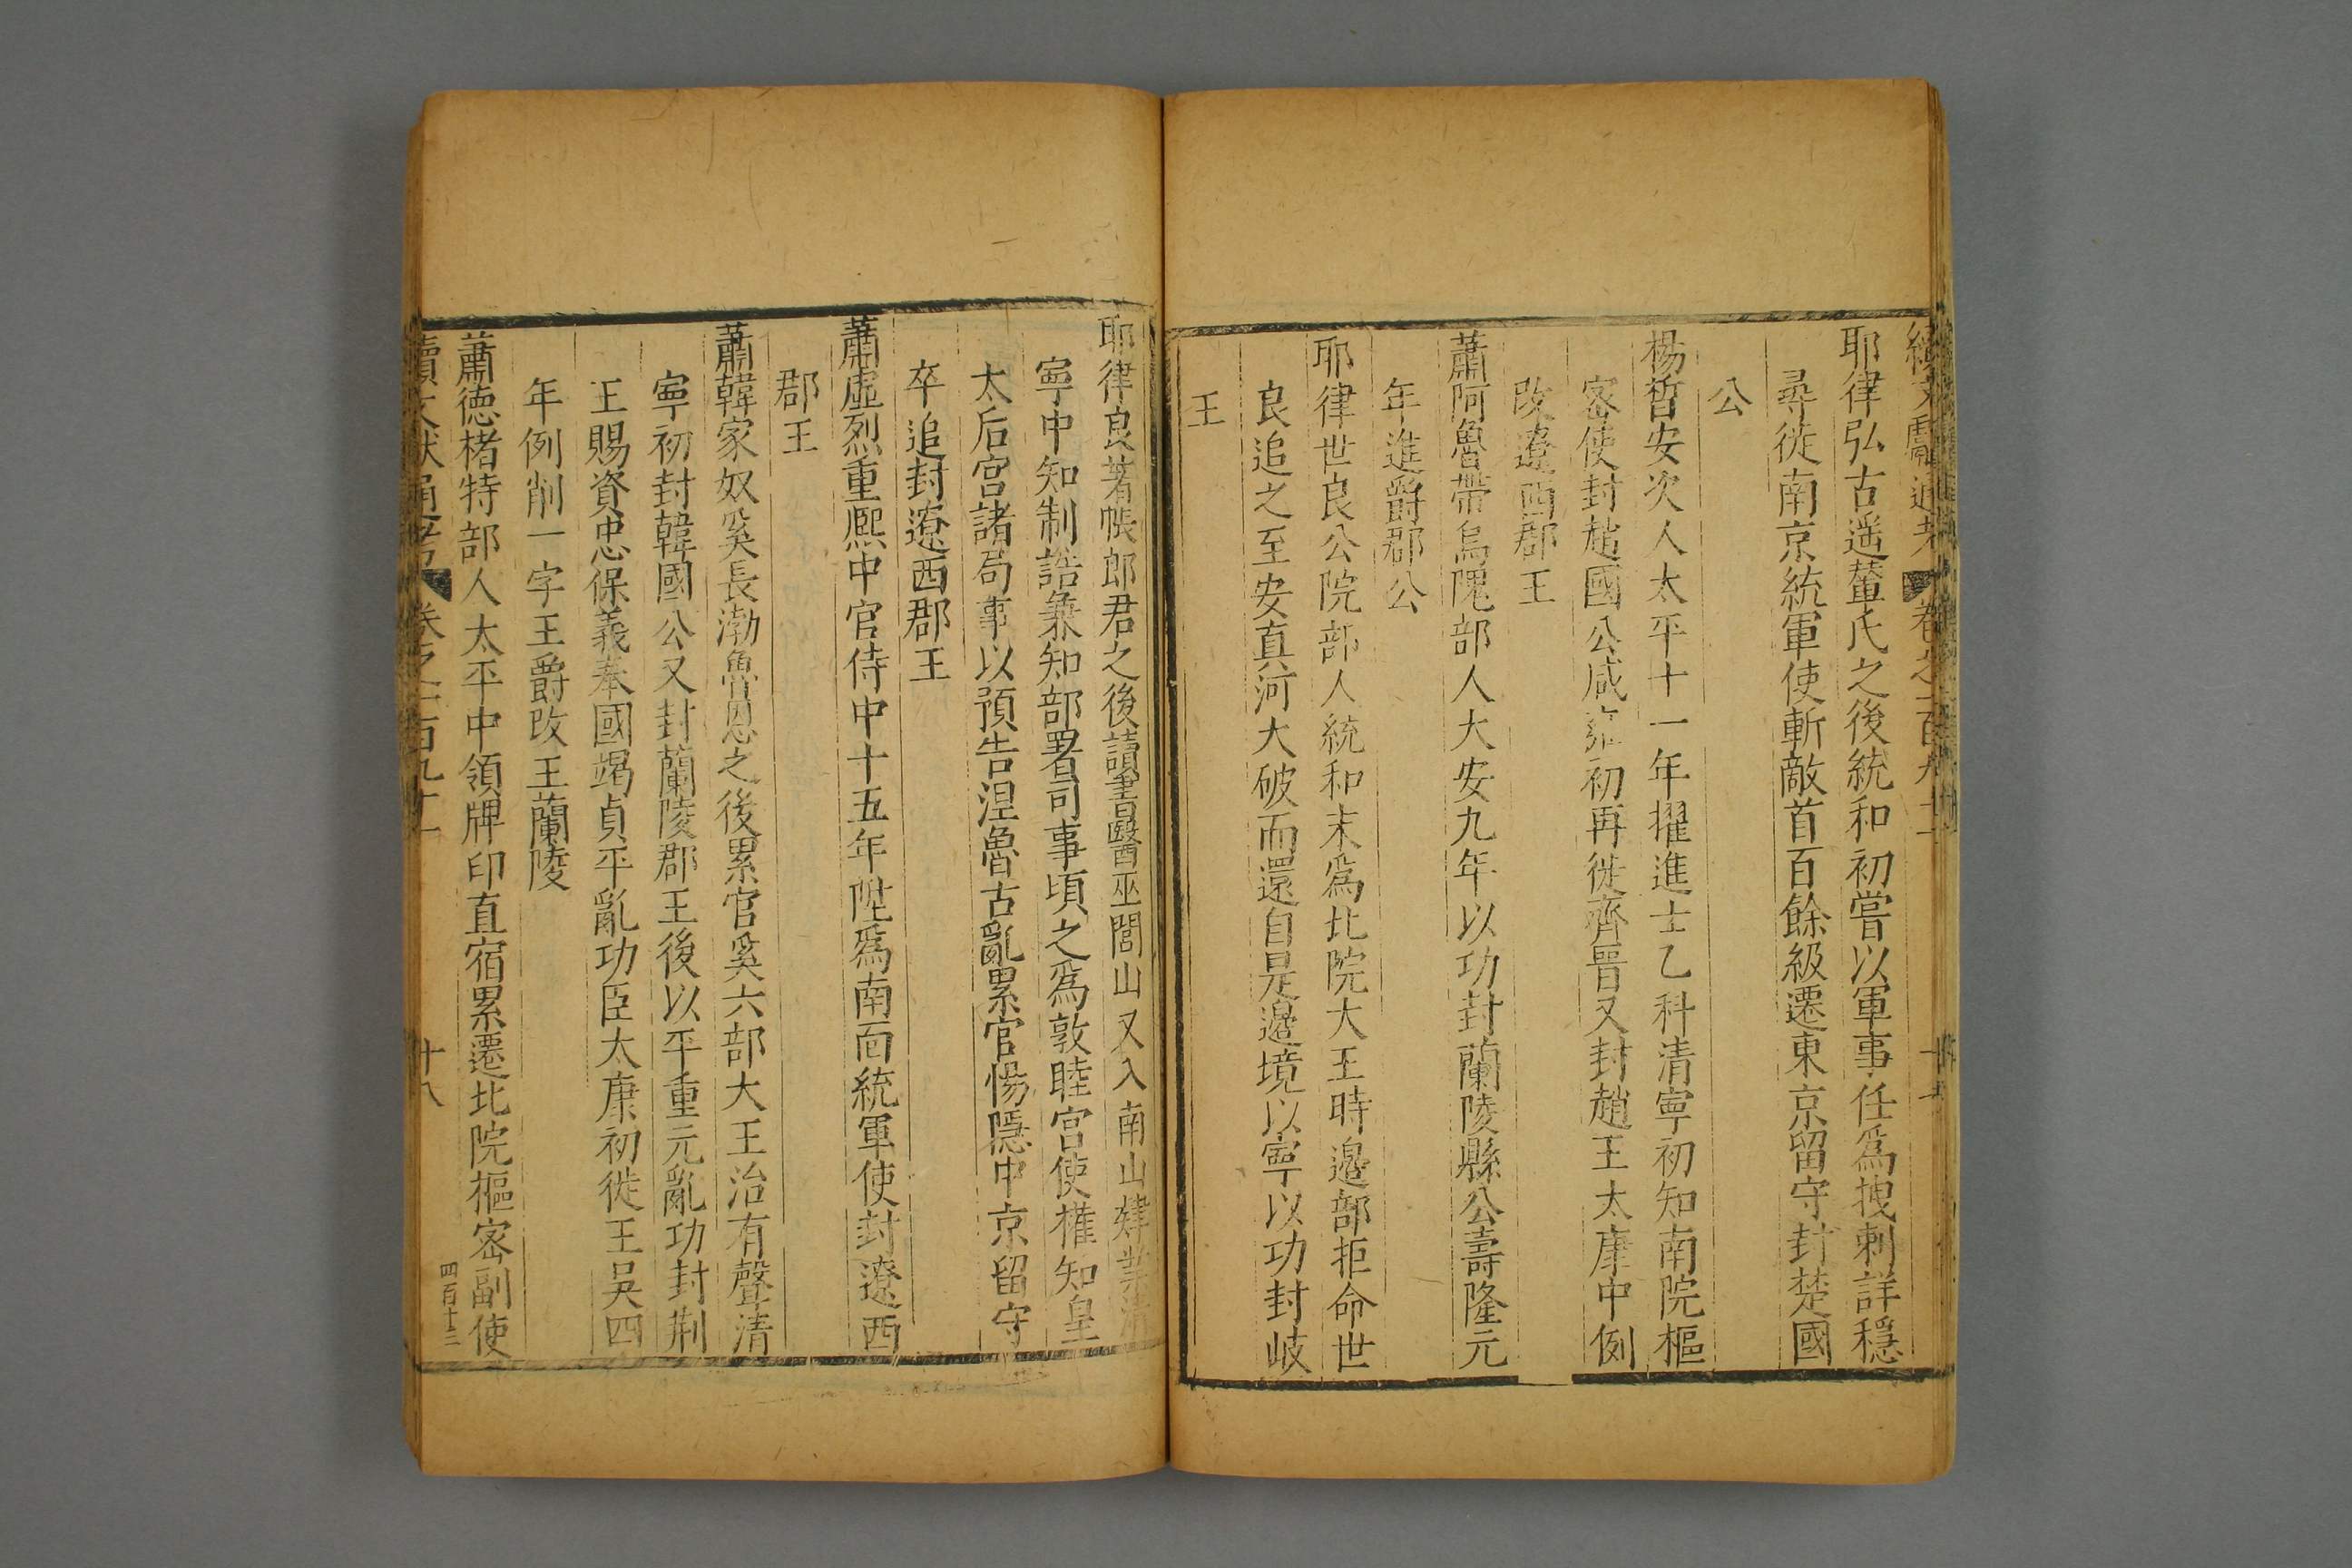 續文獻通考 卷之二百九十一
耶律弘古遥輦氏之後統和初嘗以軍事任爲拽剌詳穩
尋徙南京統軍使斬敵首百餘級遷東京留守封楚國
公
楊晢安次人太平十一年擢進士乙科清寧初知南院樞
密使封趙國公咸雍初再徙齊晉又封趙王太康中例
改遼西郡王
蕭阿魯帶烏隗部人大安九年以功封蘭陵縣公壽隆元
年進爵郡公
耶律世良公院部人統和末爲北院大王時邉部拒命世
良追之至安真河大破而還自是邉境以寧以功封岐
王
耶律良著帳郎君之後讀書醫巫閭山又入南山肄業清
寧中知制誥兼知部署司事頃之爲敦睦宫使權知皇
太后宫諸局事以預告涅魯古亂累官惕隱中京留守
卒追封遼西郡王
蕭虛烈重熈中官侍中十五年陞爲南面統軍使封遼西
郡王
蕭韓家奴奚長渤魯恩之後累官奚六部大王治有聲清
寧初封韓國公又封蘭陵郡王後以平重元亂功封荆
王賜資忠保義奉國竭貞平亂功臣太康初徙王吳四
年例削一字王爵改王蘭陵
蕭德楮特部人太平中領牌印直宿累遷北院樞密副使
續文獻通考 卷之二百九十一 十八
四百十三